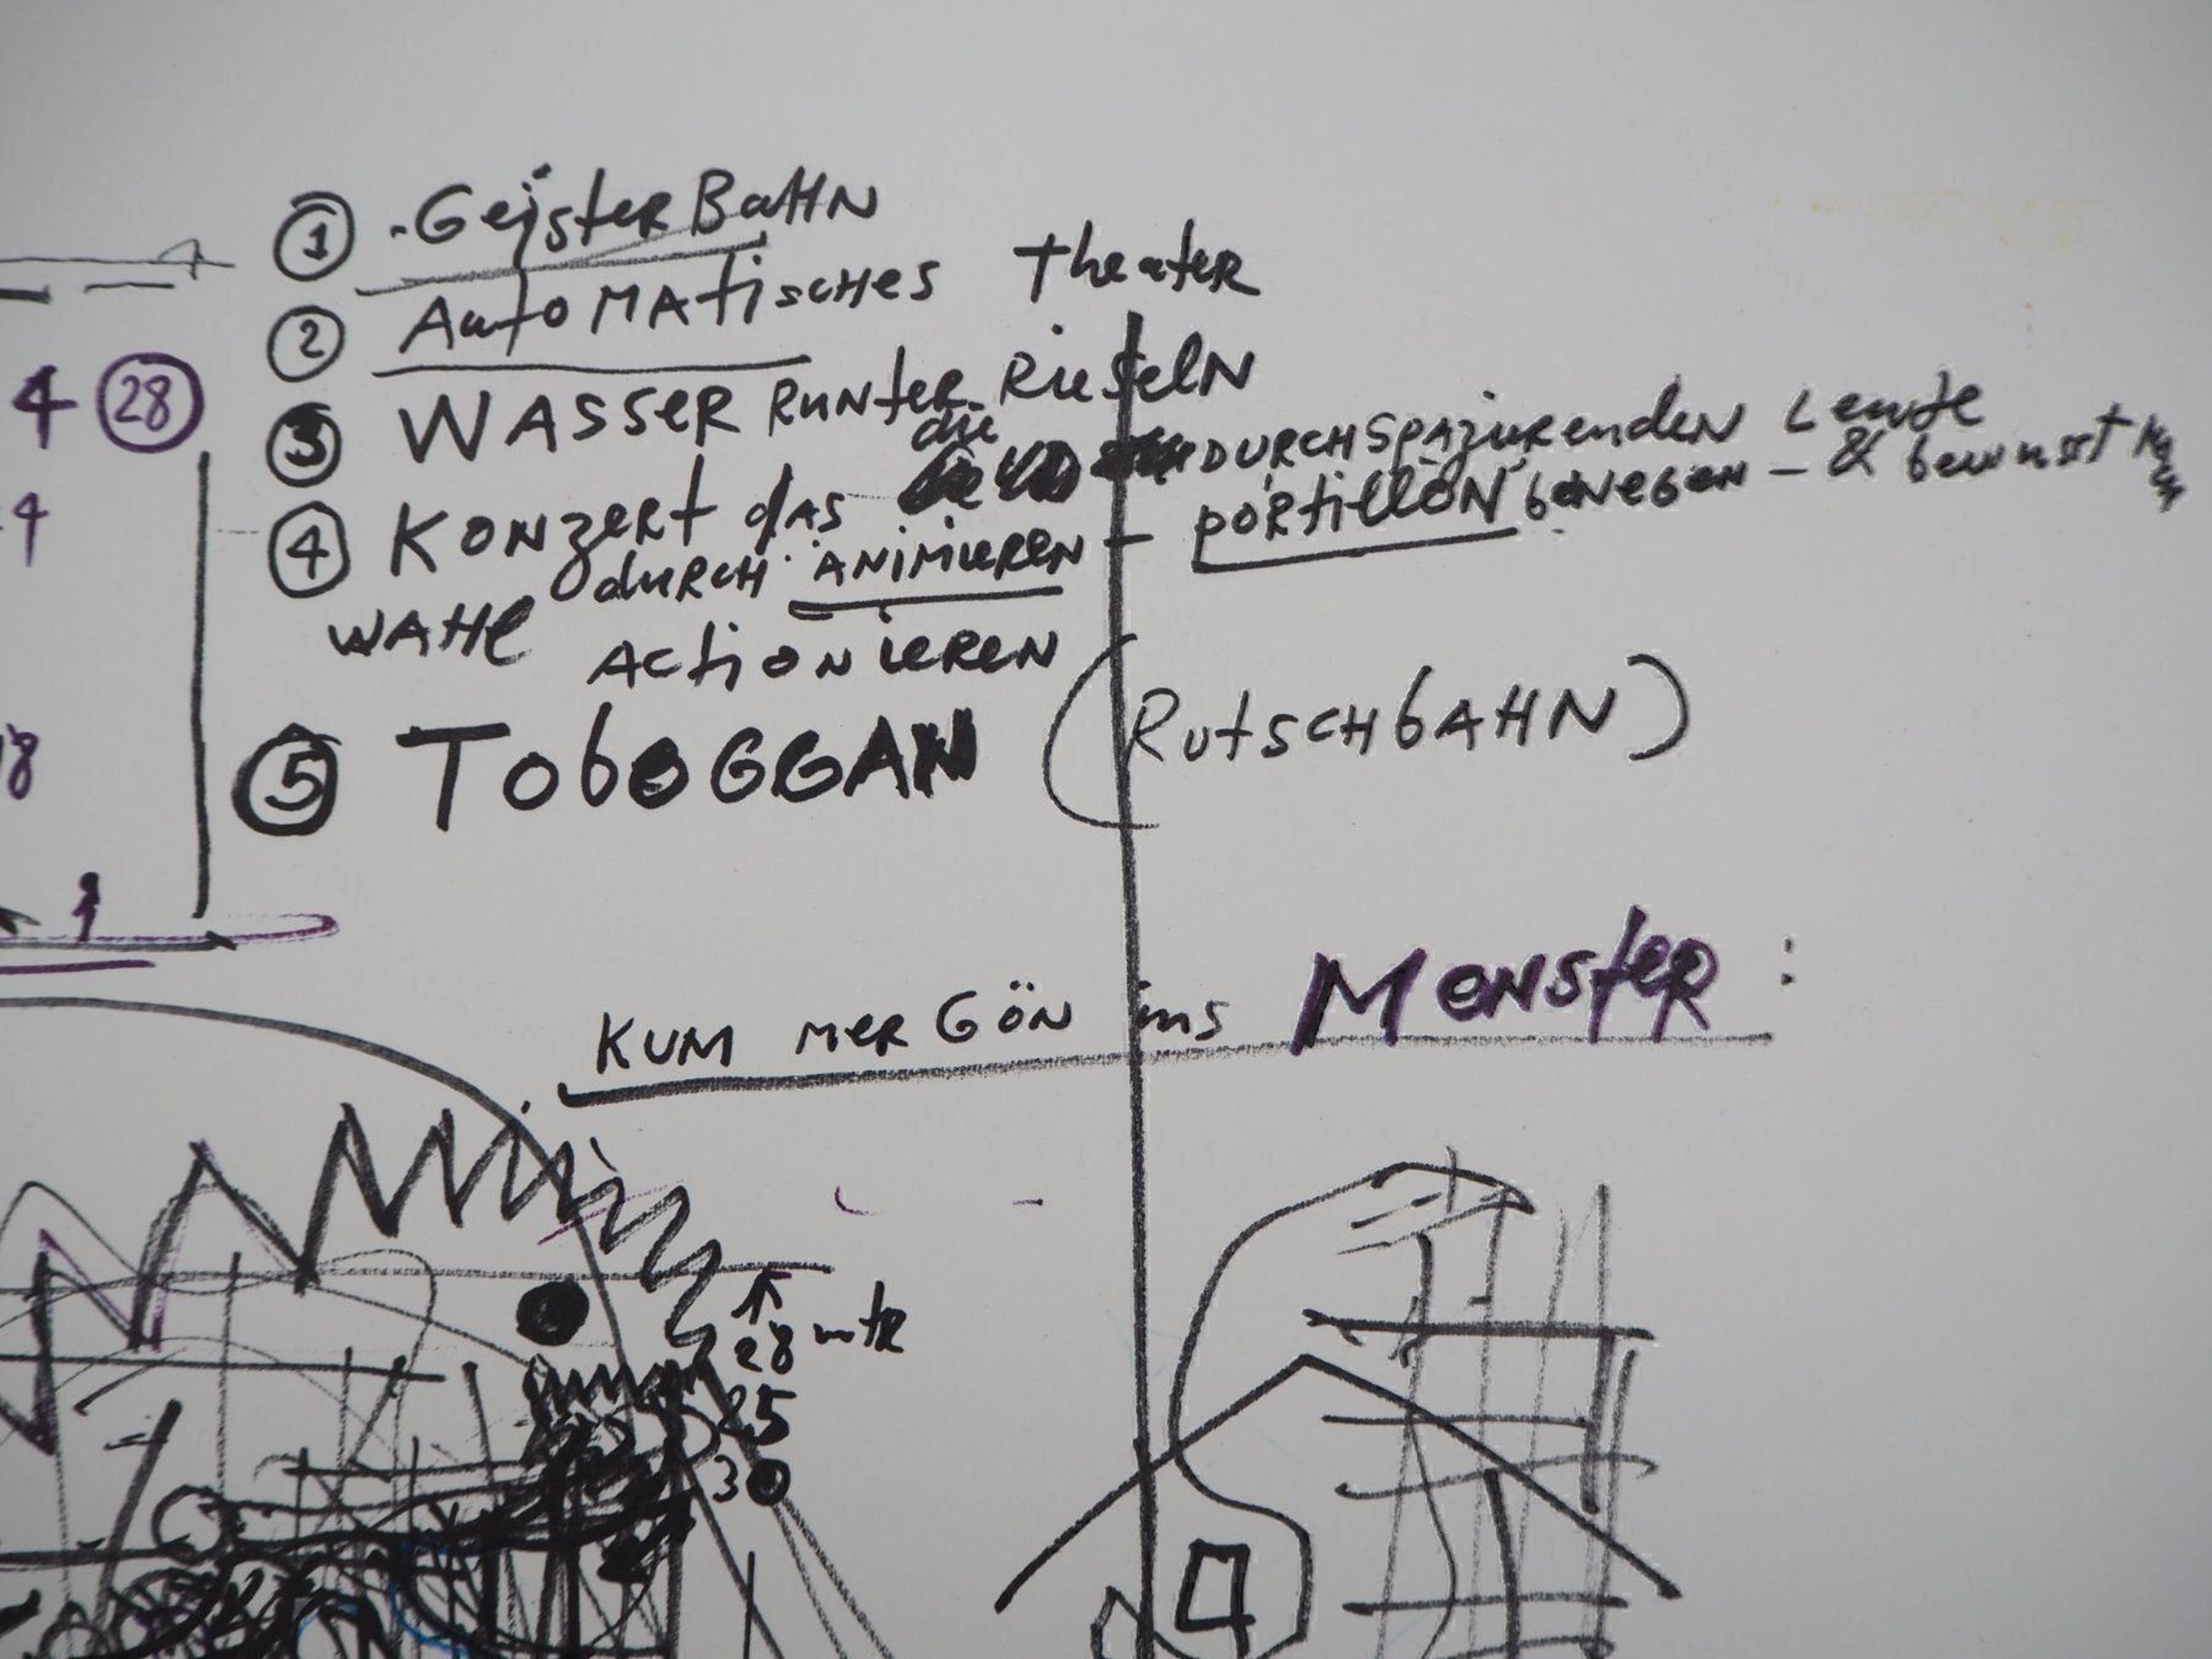 ① GeisterBaHN
② AutoMAtiscHes Theater
4 28
③ WASSER RUNter Rieseln
4
④ KONzeRt das die DURCHSpAzierenden Leute
durcH ANiMieREN - pORtillON beWegen - & bewusst
WAHl ActiONieREN
18
⑤ TobOGGAN (RutscHbAHN)
1
KUM MER GÖN ins MONSteR :
28 mtR
25
30